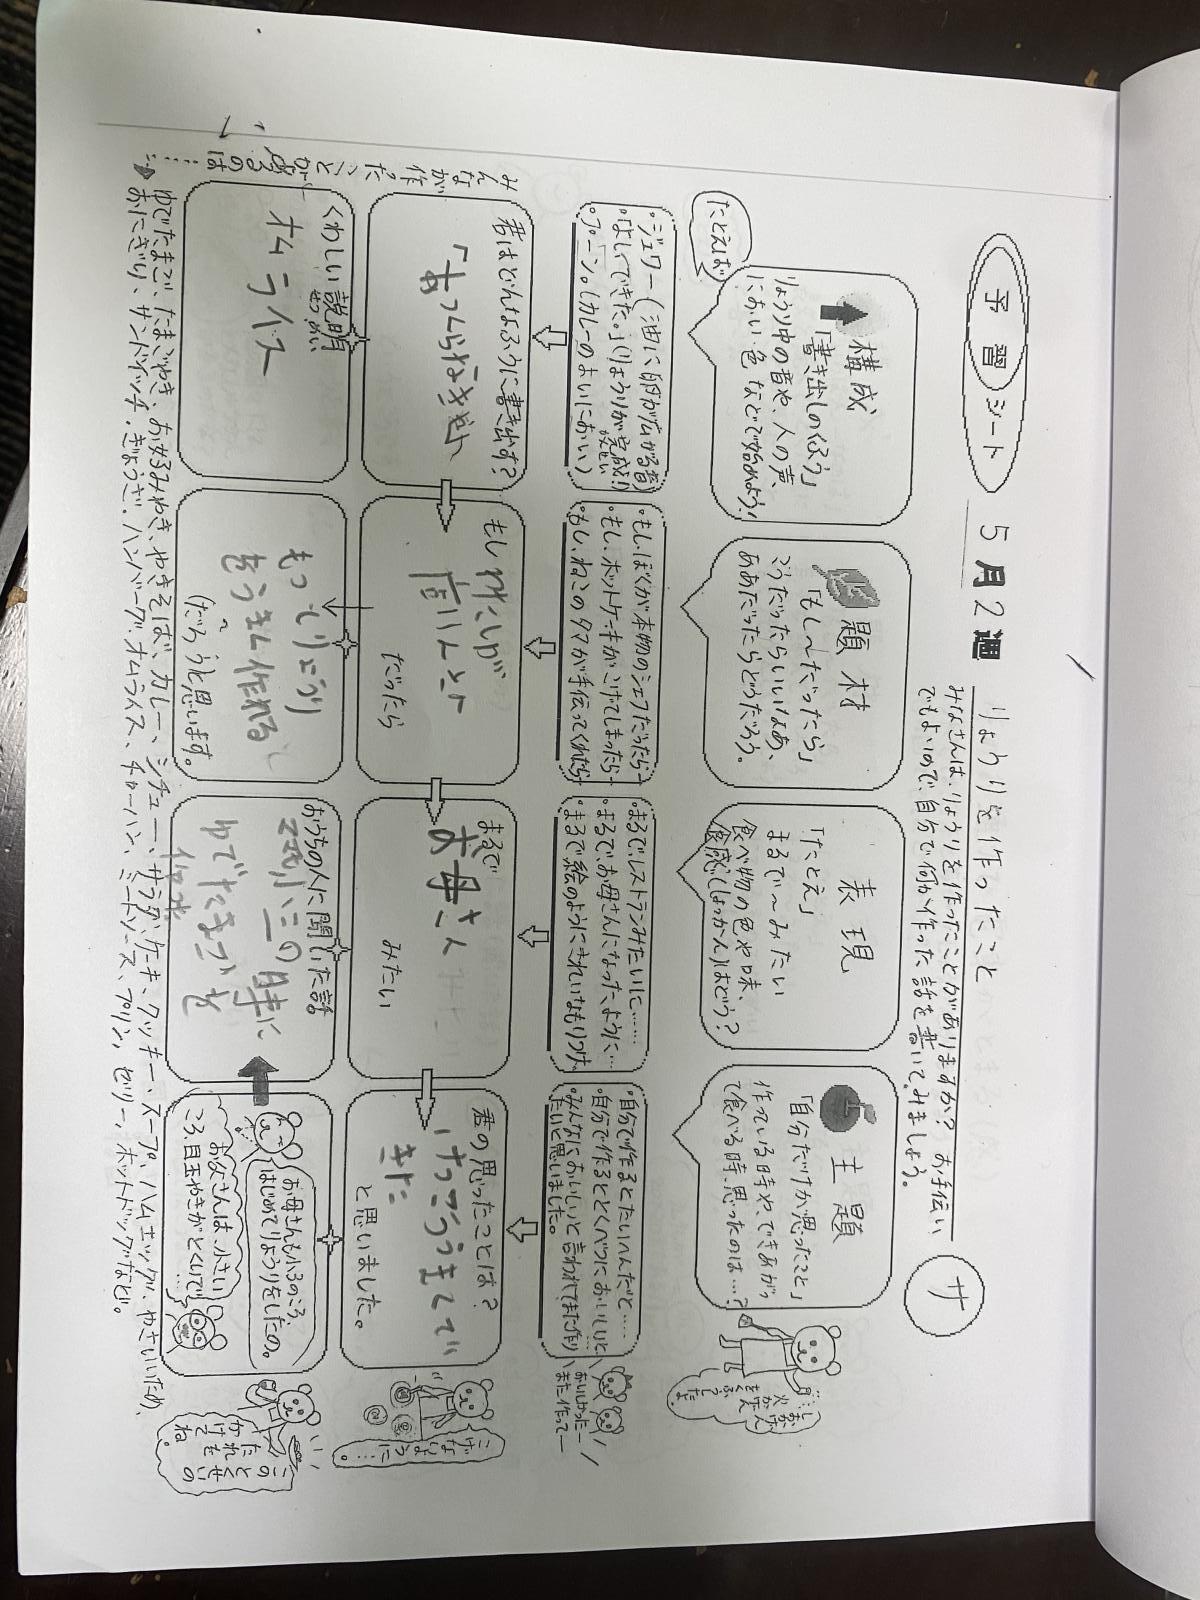 予習シート 5月2週
りょうりを作ったこと
みなさんは、りょうりを作ったことがありますか？お手伝い
でもよいので、自分で何か作った話を書いてみましょう。
サ
たとえば
構成
「書き出しのくふう」
りょうり中の音や、人の声、
におい、色などで始めよう！
題材
「もし〜だったら」
こうだったらいいなあ、
ああだったらどうだろう。
表現
「たとえ」
まるで〜みたい
食べ物の色や味、
食感(しょっかん)はどう？
主題
「自分だけが思ったこと」
作っている時や、できあがっ
て食べる時、思ったのは…？
・ジュワー(油に卵が広がる音)
・「よしできた。」(りょうりが完成！)
・プーン。(カレーのよいにおい)
・もし、ぼくが本物のシェフだったら
・もし、ホットケーキがこげてしまったら
・もし、ねこのタマが手伝ってくれたら
・まるで、レストランみたいに……
・まるで、お母さんになったように…
・まるで絵のようにきれいなもりつけ。
・自分で作るとたいへんだと……
・自分で作るととくべつにおいしいと…
・みんなにおいしいと言われてまた作り
たいと思いました。
おいしかったー
また作ってー
君はどんなふうに書き出す？
もしわたしが
だったら
まるで
お母さん
みたい
君の思ったことは？
けっこううまくで
きた
と思いました。
こげ
ない
ように…
くわしい説明
せつめい
オムライス
もっとりょうり
をうまく作れる
(だろう)と思います。
おうちの人に聞いた話
小二の時に
ゆでたまごを
お母さんも小3のころ、
はじめてりょうりをしたの。
お父さんは、小さい
ころ、目玉やきがとくいで…
このとくせいの
たれを
かけてね。
みんなが作ったことがあるのは……
→ゆでたまご、たまごやき、お好みやき、やきそば、カレー、シチュー、サラダ、ケーキ、クッキー、スープ、ハムエッグ、やさいいため、
おにぎり、サンドイッチ、ぎょうざ、ハンバーグ、オムライス、チャーハン、ミートソース、プリン、ゼリー、ホットドッグなど。